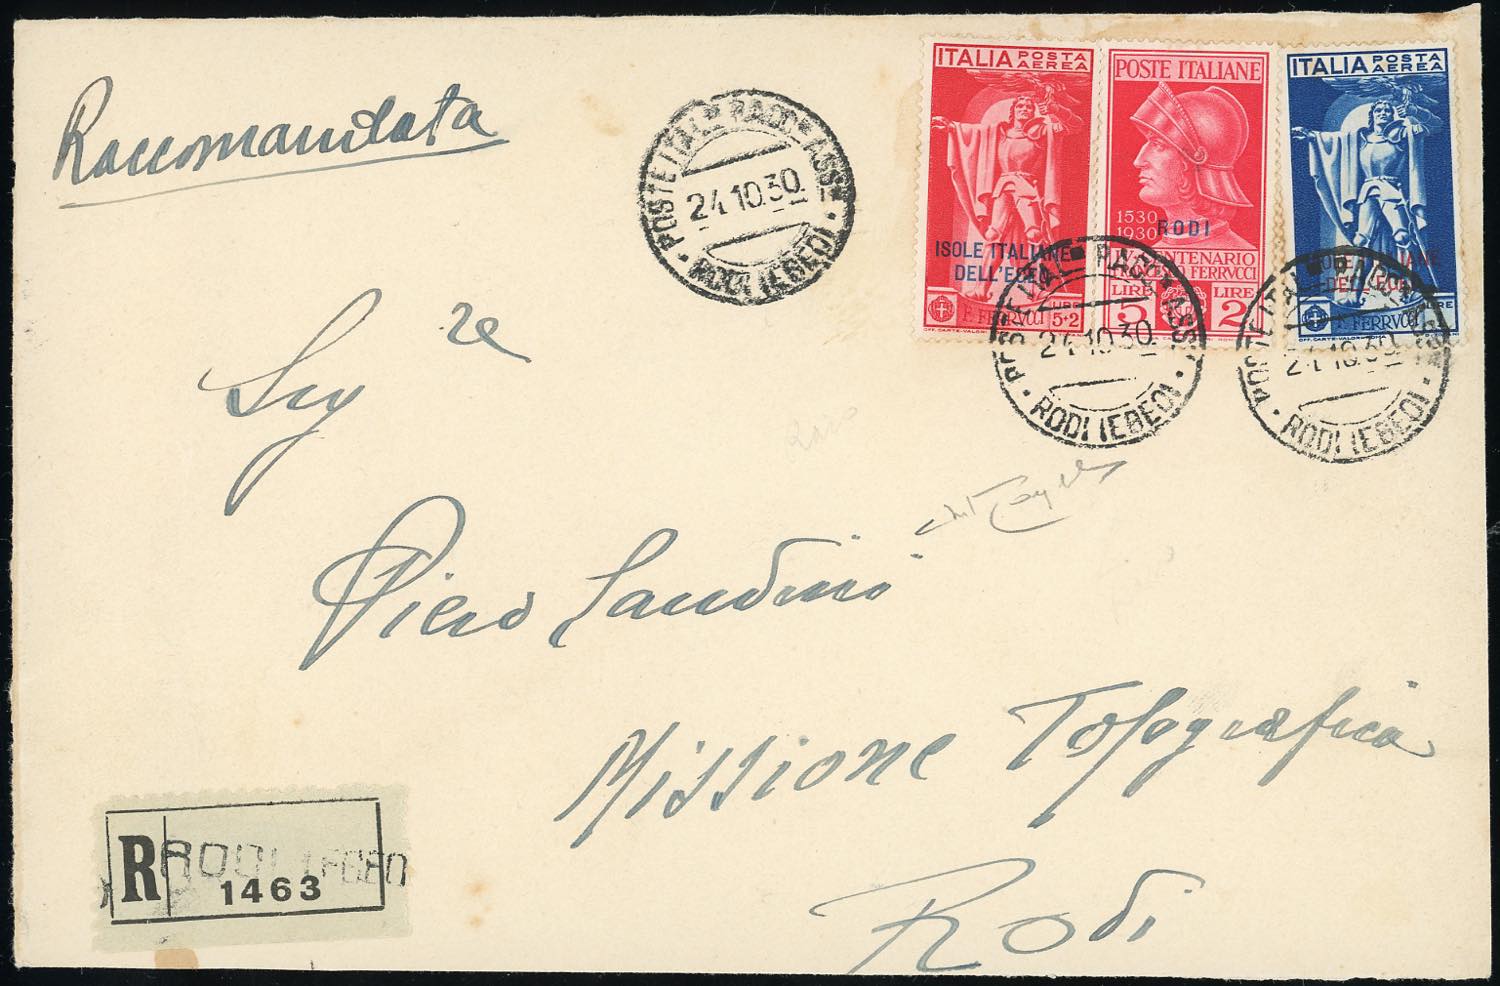 Raccomandata
POSTE ITAL. PACCHI ASS.
24.10.30.
RODI (EGEO)
ITALIA POSTA AEREA
ISOLE ITALIANE
DELL'EGEO
LIRE
5+2
F. FERRVCCI
POSTE ITALIANE
1530
1930
RODI
IV CENTENARIO
FRANCESCO FERRVCCI
LIRE LIRE
5 2
ITALIA POSTA AEREA
ISOLE ITALIANE
DELL'EGEO
LIRE
F. FERRVCCI
24.10.30.
RODI (EGEO)
24.10.30.
RODI (EGEO)
Sigre
Piero Landini
Missione Topografica
Rodi
R RODI (EGEO)
1463